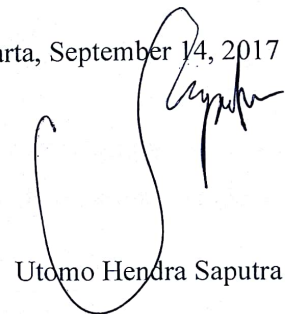 arta, September 14, 2017
Utomo Hendra Saputra